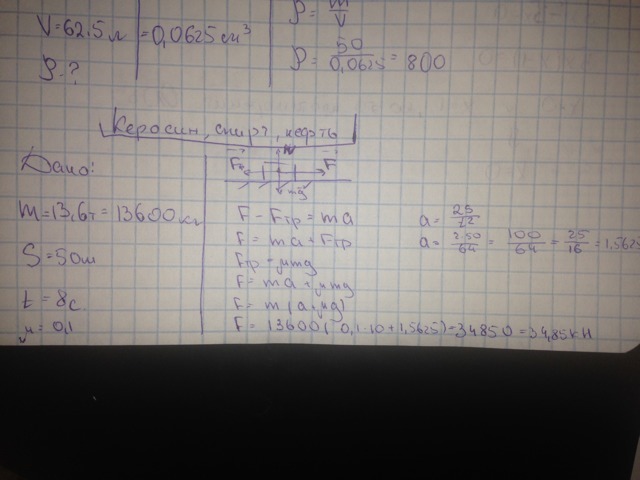 V=62.5 л = 0,0625 см³
ρ-?
ρ = m/V
ρ = 50/0,0625 = 800
Керосин, спирт, нефть
Дано:
m=13,6т = 13600 кг
S=50м
t = 8с.
μ = 0,1
Fтр N F
mg
F - Fтр = ma
F = ma + Fтр
Fтр = μmg
F = ma + μmg
F = m(a+μg)
F = 13600(0,1·10+1,5625)=34850=34,85кН
a = 2S/t2
a = 2.50/64 = 100/64 = 25/16 = 1,5625